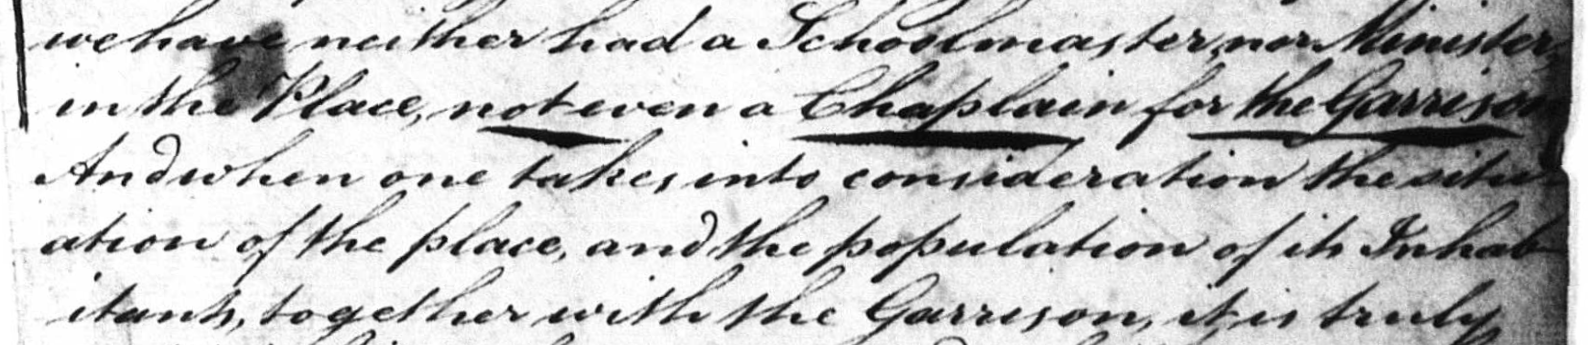 we have neither had a Schoolmaster, nor Minister,
in the Place, not even a Chaplain for the Garrison
And when one takes into consideration the situ-
ation of the place, and the population of its Inhab-
itants, together with the Garrison, it is truly